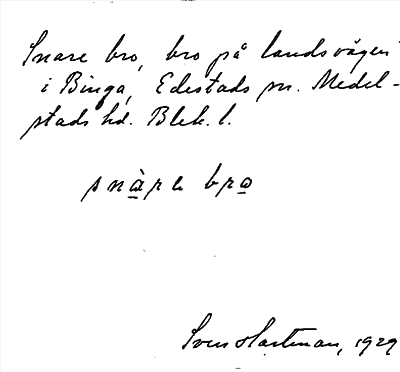 Snare bro, bro på landsvägen
i Binga, Edestads sn. Medel-
stads hd. Blek. l.
snàre bro
Sven Hartman, 1929